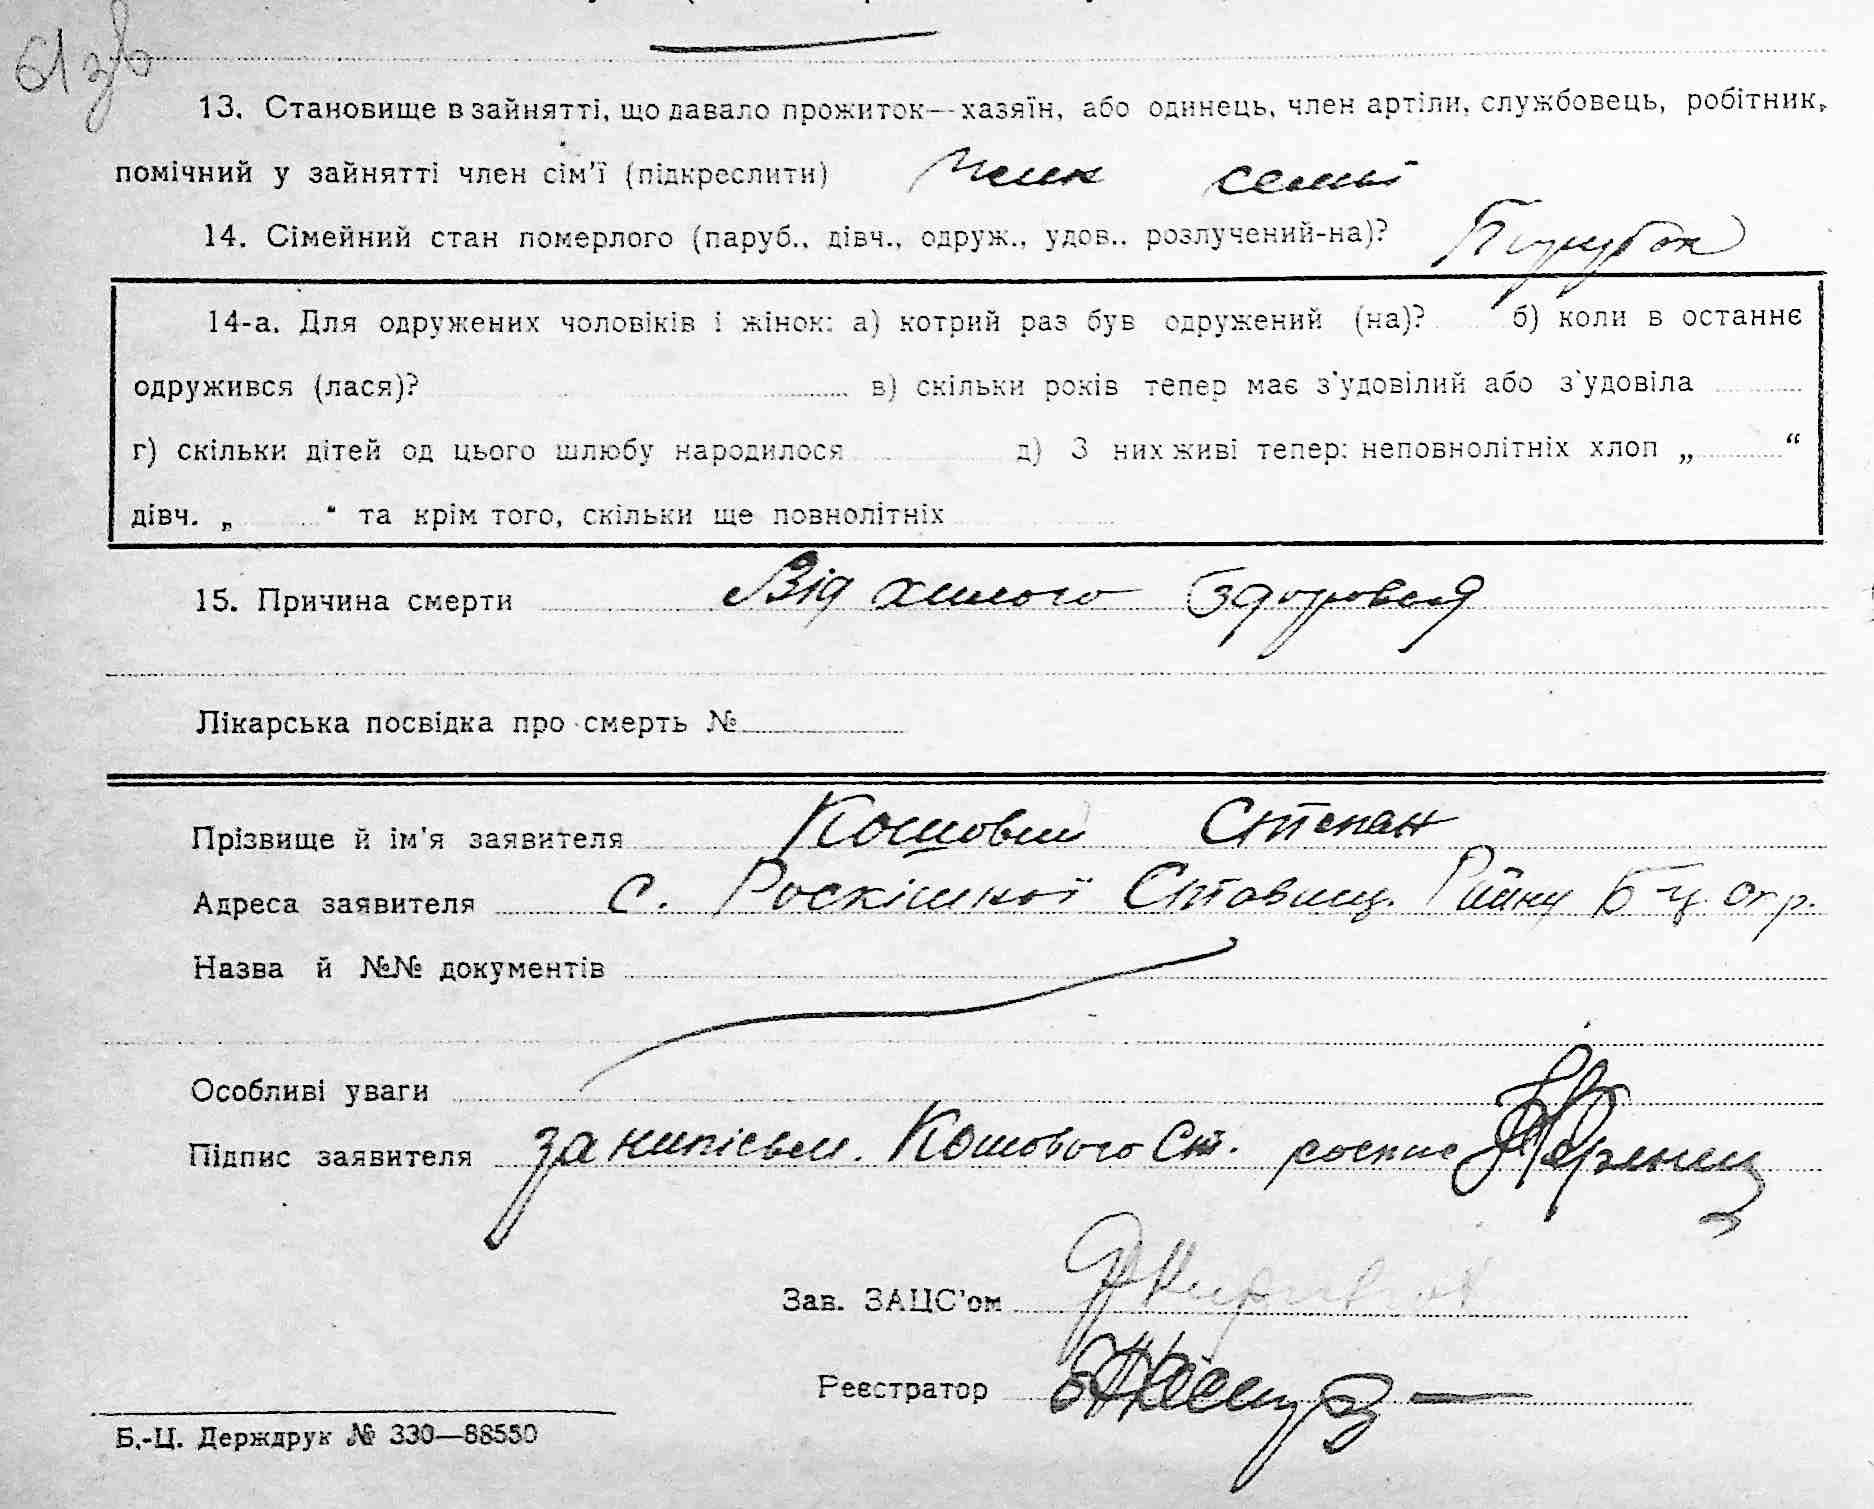 61 зв
13. Становище в зайнятті, що давало прожиток—хазяїн, або одинець, член артіли, службовець, робітник,
помічний у зайнятті член сім'ї (підкреслити) Член семьї
14. Сімейний стан померлого (паруб., дівч., одруж., удов.. розлучений-на)? Парубок
14-а. Для одружених чоловіків і жінок: а) котрий раз був одружений (на)? б) коли в останнє
одружився (лася)? в) скільки років тепер має з'удовілий або з'удовіла
г) скільки дітей од цього шлюбу народилося д) З них живі тепер: неповнолітніх хлоп „ “
дівч. „ “ та крім того, скільки ще повнолітніх
15. Причина смерти Від хилого здоровля
Лікарська посвідка про смерть №
Прізвище й ім'я заявителя Кошовий Степан
Адреса заявителя с. Роскішної Ставищ. Району Б-Ц. окр.
Назва й №№ документів
Особливі уваги
Підпис заявителя за неписьм. Кошового Ст. роспис
Зав. ЗАЦС'ом
Реєстратор
Б.-Ц. Держдрук № 330—88550